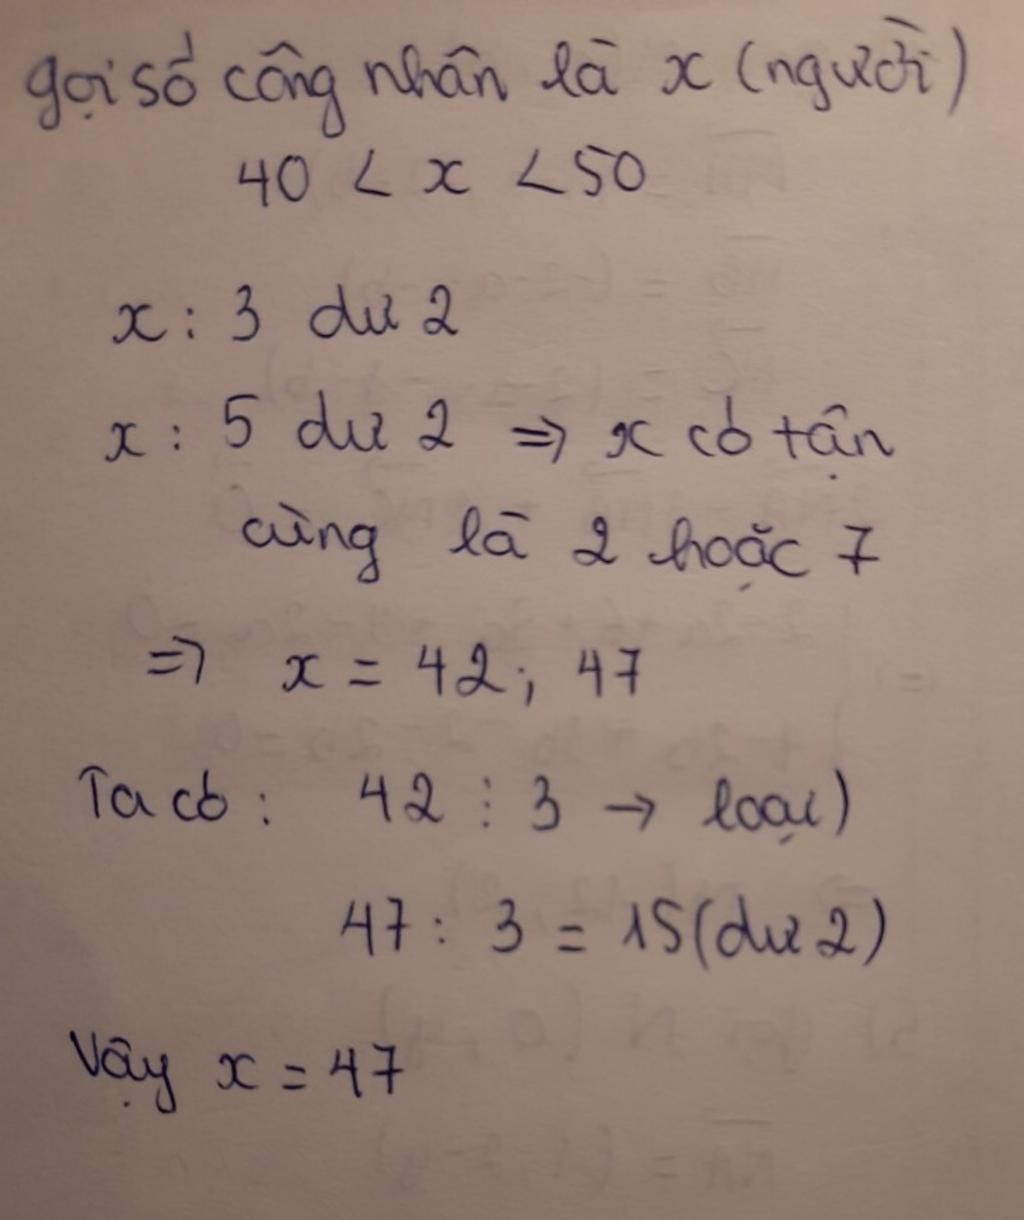 gọi số công nhân là x (người)
40 < x < 50
x : 3 dư 2
x : 5 dư 2 => x có tận
cùng là 2 hoặc 7
=> x = 42; 47
Ta có : 42 ⋮ 3 → loại)
47 : 3 = 15 (dư 2)
Vậy x = 47